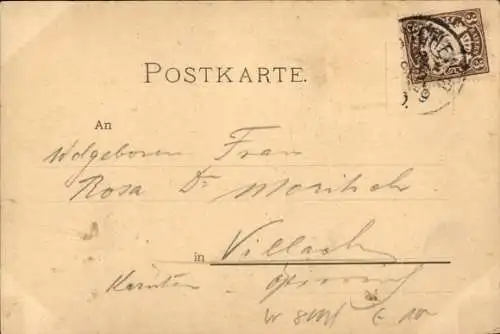 POSTKARTE.
An
Wolgeboren Frau
Rosa Dr Moritsch.
in Villach
Kärnten